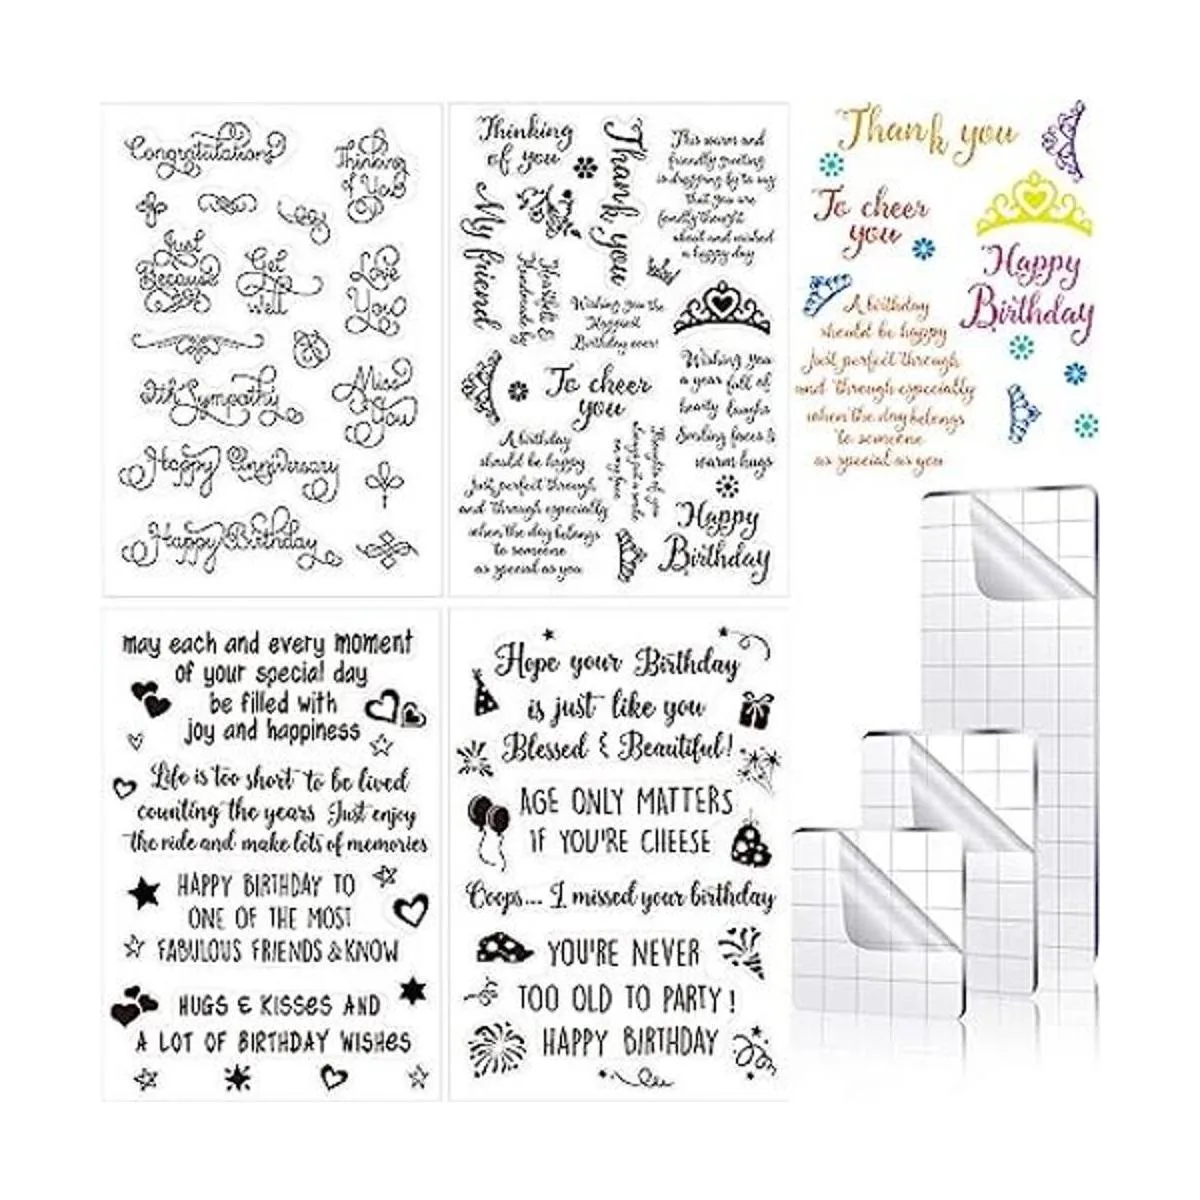 Congratulations
Thinking
of You
Just
Because
Get
Well
Love
You
With Sympathy
Miss
You
Happy Anniversary
Happy Birthday
Thinking
of you
Thank you
My friend
This warm and
friendly greeting
is dropping by to say
that you are
fondly thought
about and wished
a happy day
Heartfelt &
Handmade by
Wishing you the
Happiest
Birthday ever!
To cheer
you
Wishing you
a year full of
hearty laughs
Smiling faces &
warm hugs
A birthday
should be happy
Just perfect through
and through especially
when the day belongs
to someone
as special as you
Thoughts of you
always put a smile
on my face
Happy
Birthday
Thank you
To cheer
you
Happy
Birthday
A birthday
should be happy
Just perfect through
and through especially
when the day belongs
to someone
as special as you
may each and every moment
of your special day
be filled with
joy and happiness
Life is too short to be lived
counting the years Just enjoy
the ride and make lots of memories
HAPPY BIRTHDAY TO
ONE OF THE MOST
FABULOUS FRIENDS & KNOW
HUGS & KISSES AND
A LOT OF BIRTHDAY WISHES
Hope your Birthday
is just like you
Blessed & Beautiful!
AGE ONLY MATTERS
IF YOU'RE CHEESE
Oops... I missed your birthday
YOU'RE NEVER
TOO OLD TO PARTY!
HAPPY BIRTHDAY